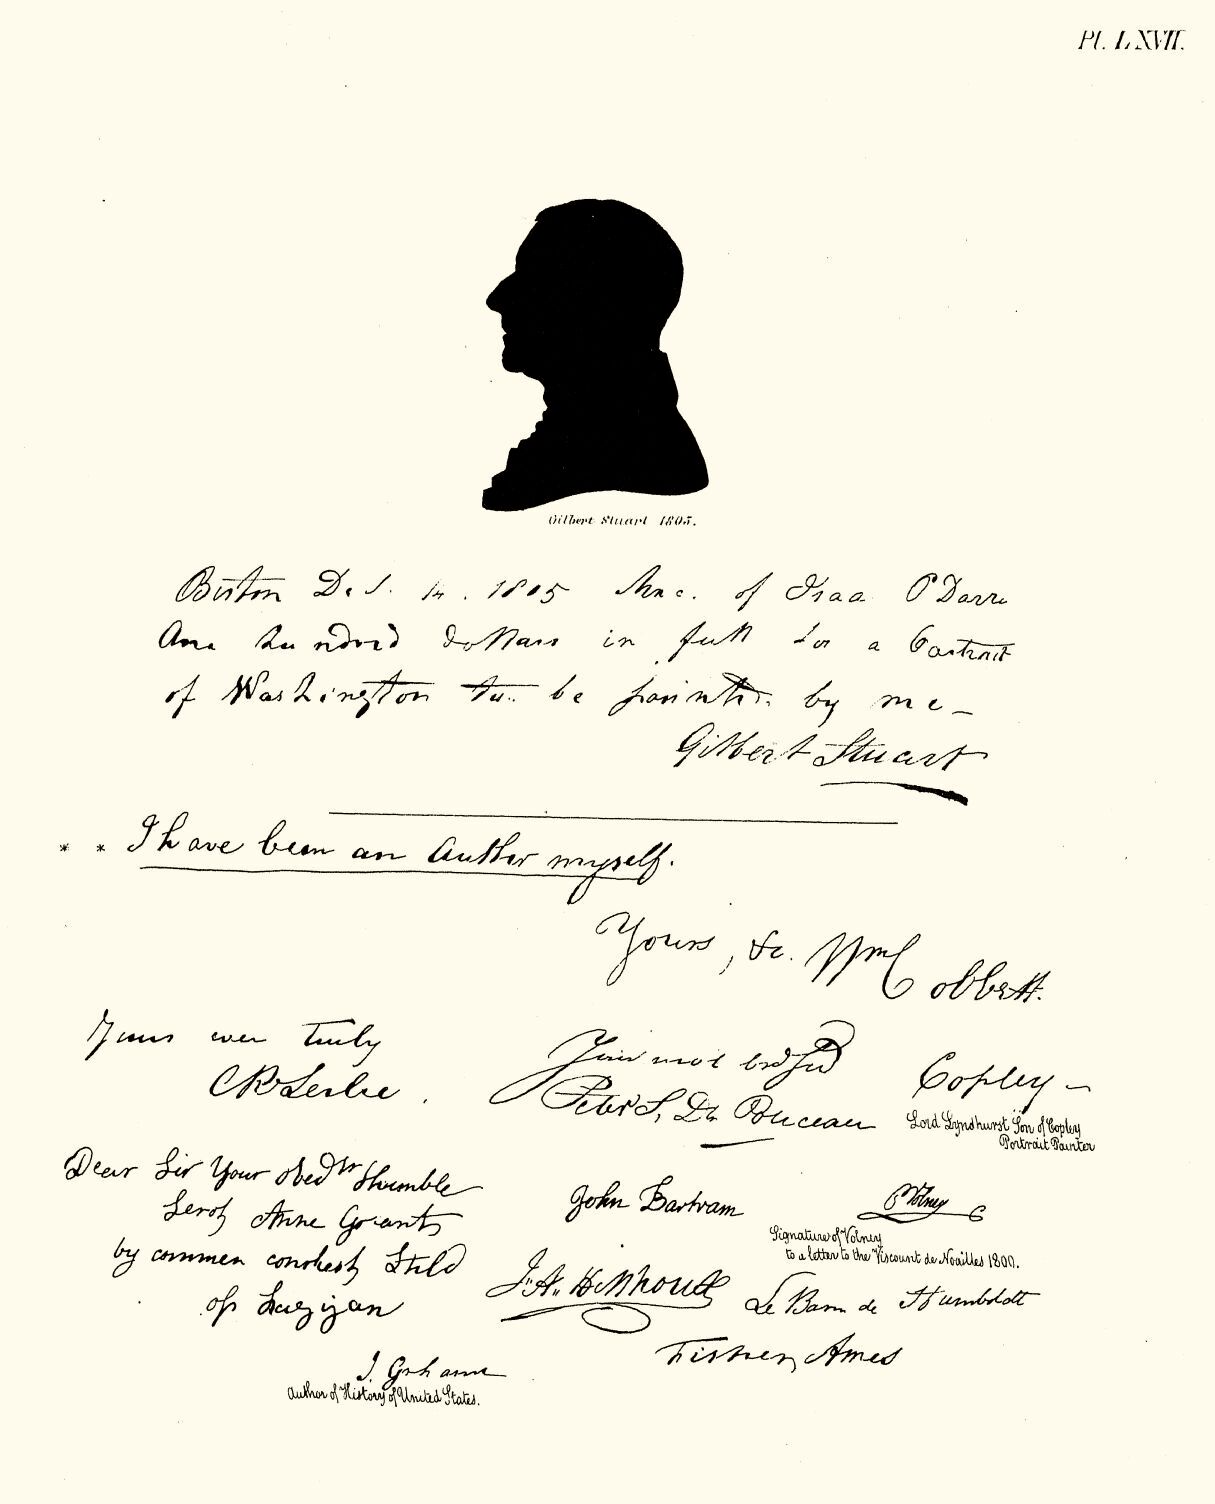 Pl. LXVII.
Gilbert Stuart 1805.
Boston 14. 1805 of Isaa
hundred dollars in full for a Portrait
of Washington to be painted by me —
Gilbert Stuart
* * I have been an Author myself.
Yours, &c. Wm Cobbett.
Yours ever truly
C R Leslie.
Your most
Peter S, Du Ponceau
Copley —
Lord Lyndhurst Son of Copley
Portrait Painter
Dear Sir Your obedt Humble
Servt Anne Grant
by common Stild
of Laggan
John Bartram
C Volney
Signature of Volney
to a letter to the Viscount de Noailles 1800.
Le Baron de Humboldt
Fisher Ames
J. Grahame
Author of History of United States.